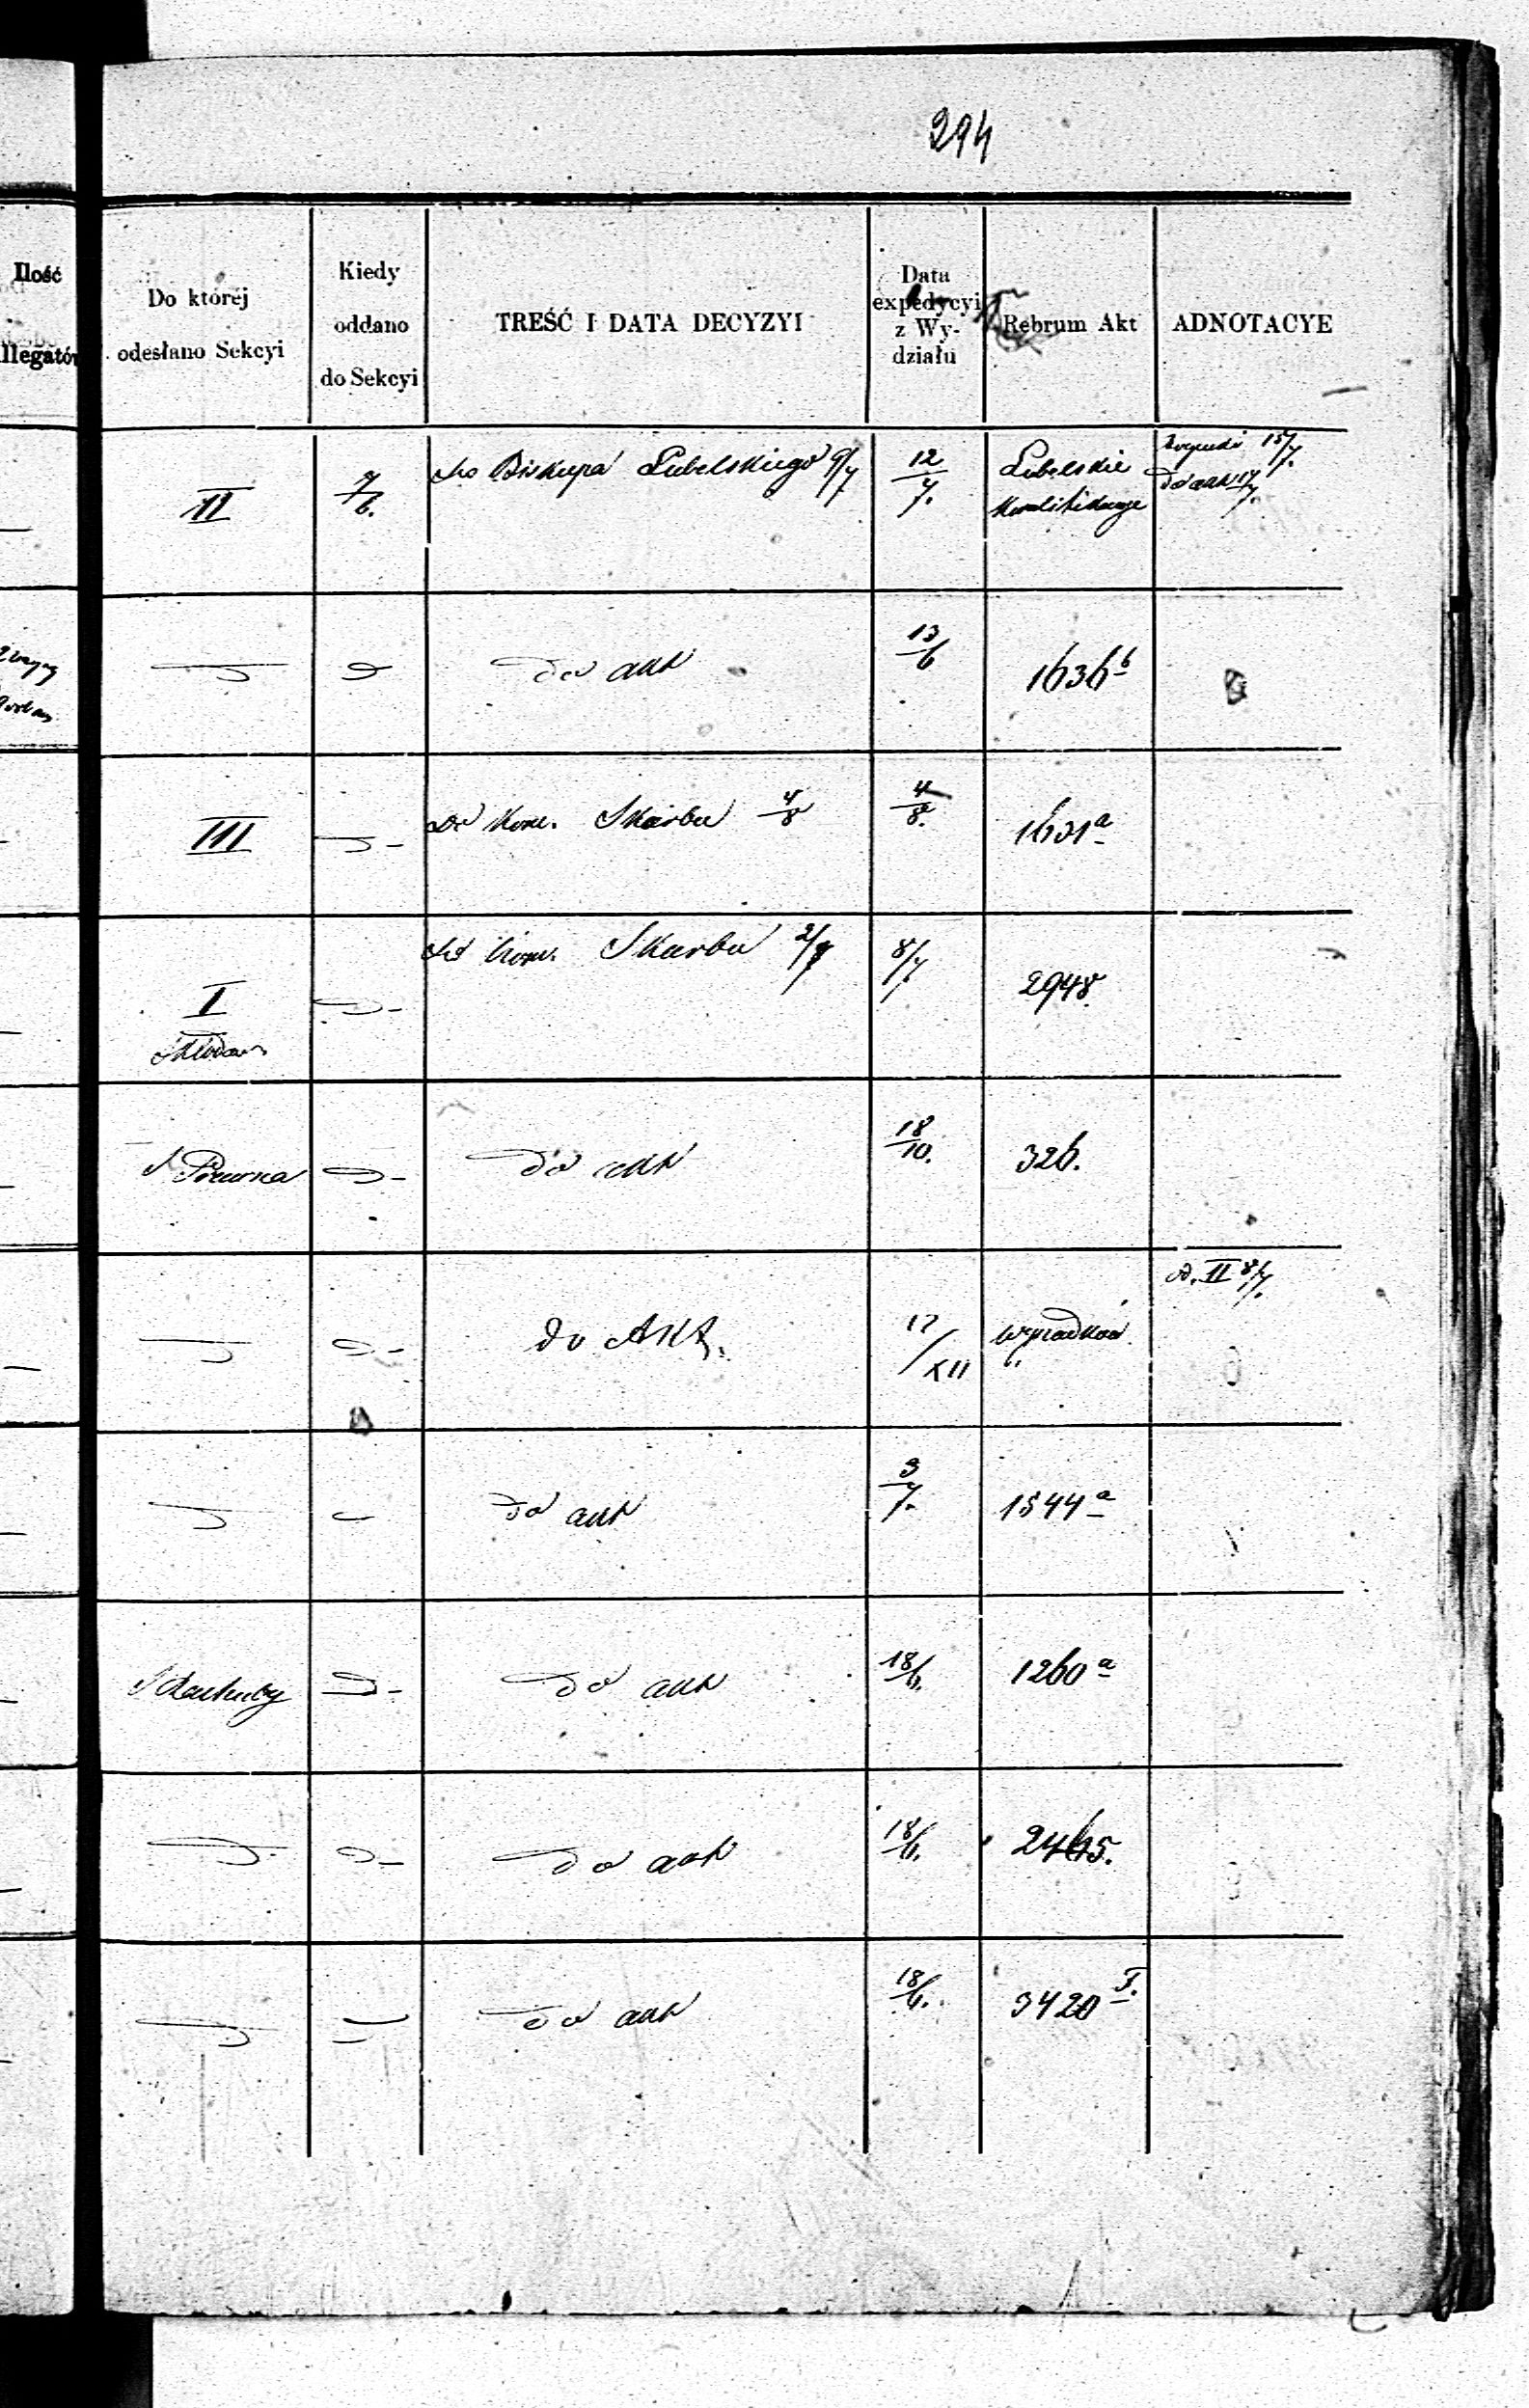 294
Ilość
llegatów
Do której
odesłano Sekcyi
Kiedy
oddano
do Sekcyi
TREŚĆ I DATA DECYZYI
Data
expedycyi
z Wy-
działu
Rebrum Akt
ADNOTACYE
II 7/6. Do Biskupa Lubelskiego 9/7 12/7. Lubelskie 15/7.
do akt 17/7.
do akt 13/6 1636 b
III Do Kom. Skarbu 4/8 4/8. 1631 a
I Do Kom. Skarbu 2/7 8/7 2948.
do akt 18/10. 326.
II 8/7.
do Akt. 17/XII "
do akt 3/7. 1544 a
do akt 18/6. 1260 a
do akt 18/6. 2465.
do akt 18/6. 3420 I.